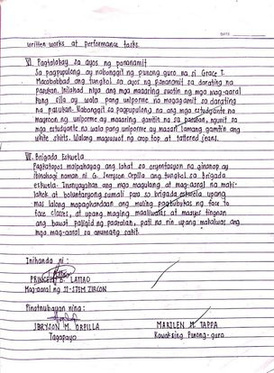 written works at performance tasks.
VI. Pagtalakay sa ayos ng pananamit
Sa pagpupulong ay nabanggit ng punong guro na si Grace T.
ang tungkol sa ayos ng pananamit sa darating na
pasukan. Inilahad niya ang mga maaaring suotin ng mga mag-aaral
kung sila ay wala pang uniporme na magagamit sa darating
na pasukan. Nabanggit sa pagpupulong na ang mga estudyante na
mayroon ng uniporme ay maaaring gamitin na sa pasukan, ngunit sa
mga estudyante na wala pang uniporme ay maaari lamang gamitin ang
white shirts. Walang magsusuot ng crop top at tattered jeans.
VII. Brigada Eskwela
Pagkatapos maipahayag ang lahat sa oryentasyon na ginanap ay
itinalagi naman ni G. Jeryson Orpilla ang tungkol sa brigada
eskwela. Inanyayahan ang mga magulang at mag-aaral na maki-
lahok at boluntaryong sumali para sa brigada eskwela upang
mas lalong mapaghandaan ang muling pagbubukas ng face to
face classes, at upang maging maaliwalas at maayos tingnan
ang bawat paligid ng paaralan, pati na rin upang mahalina ang
mga mag-aaral sa anumang sakit.
Inihanda ni:
PRINCESS B. LATTAO
Mag-aaral ng 11-STEM ZIRCON
Pinatnubayan nina:
JERYSON M. ORPILLA
Tagapayo
MARILEN M. TAPPA
Kawaksing Punong-guro